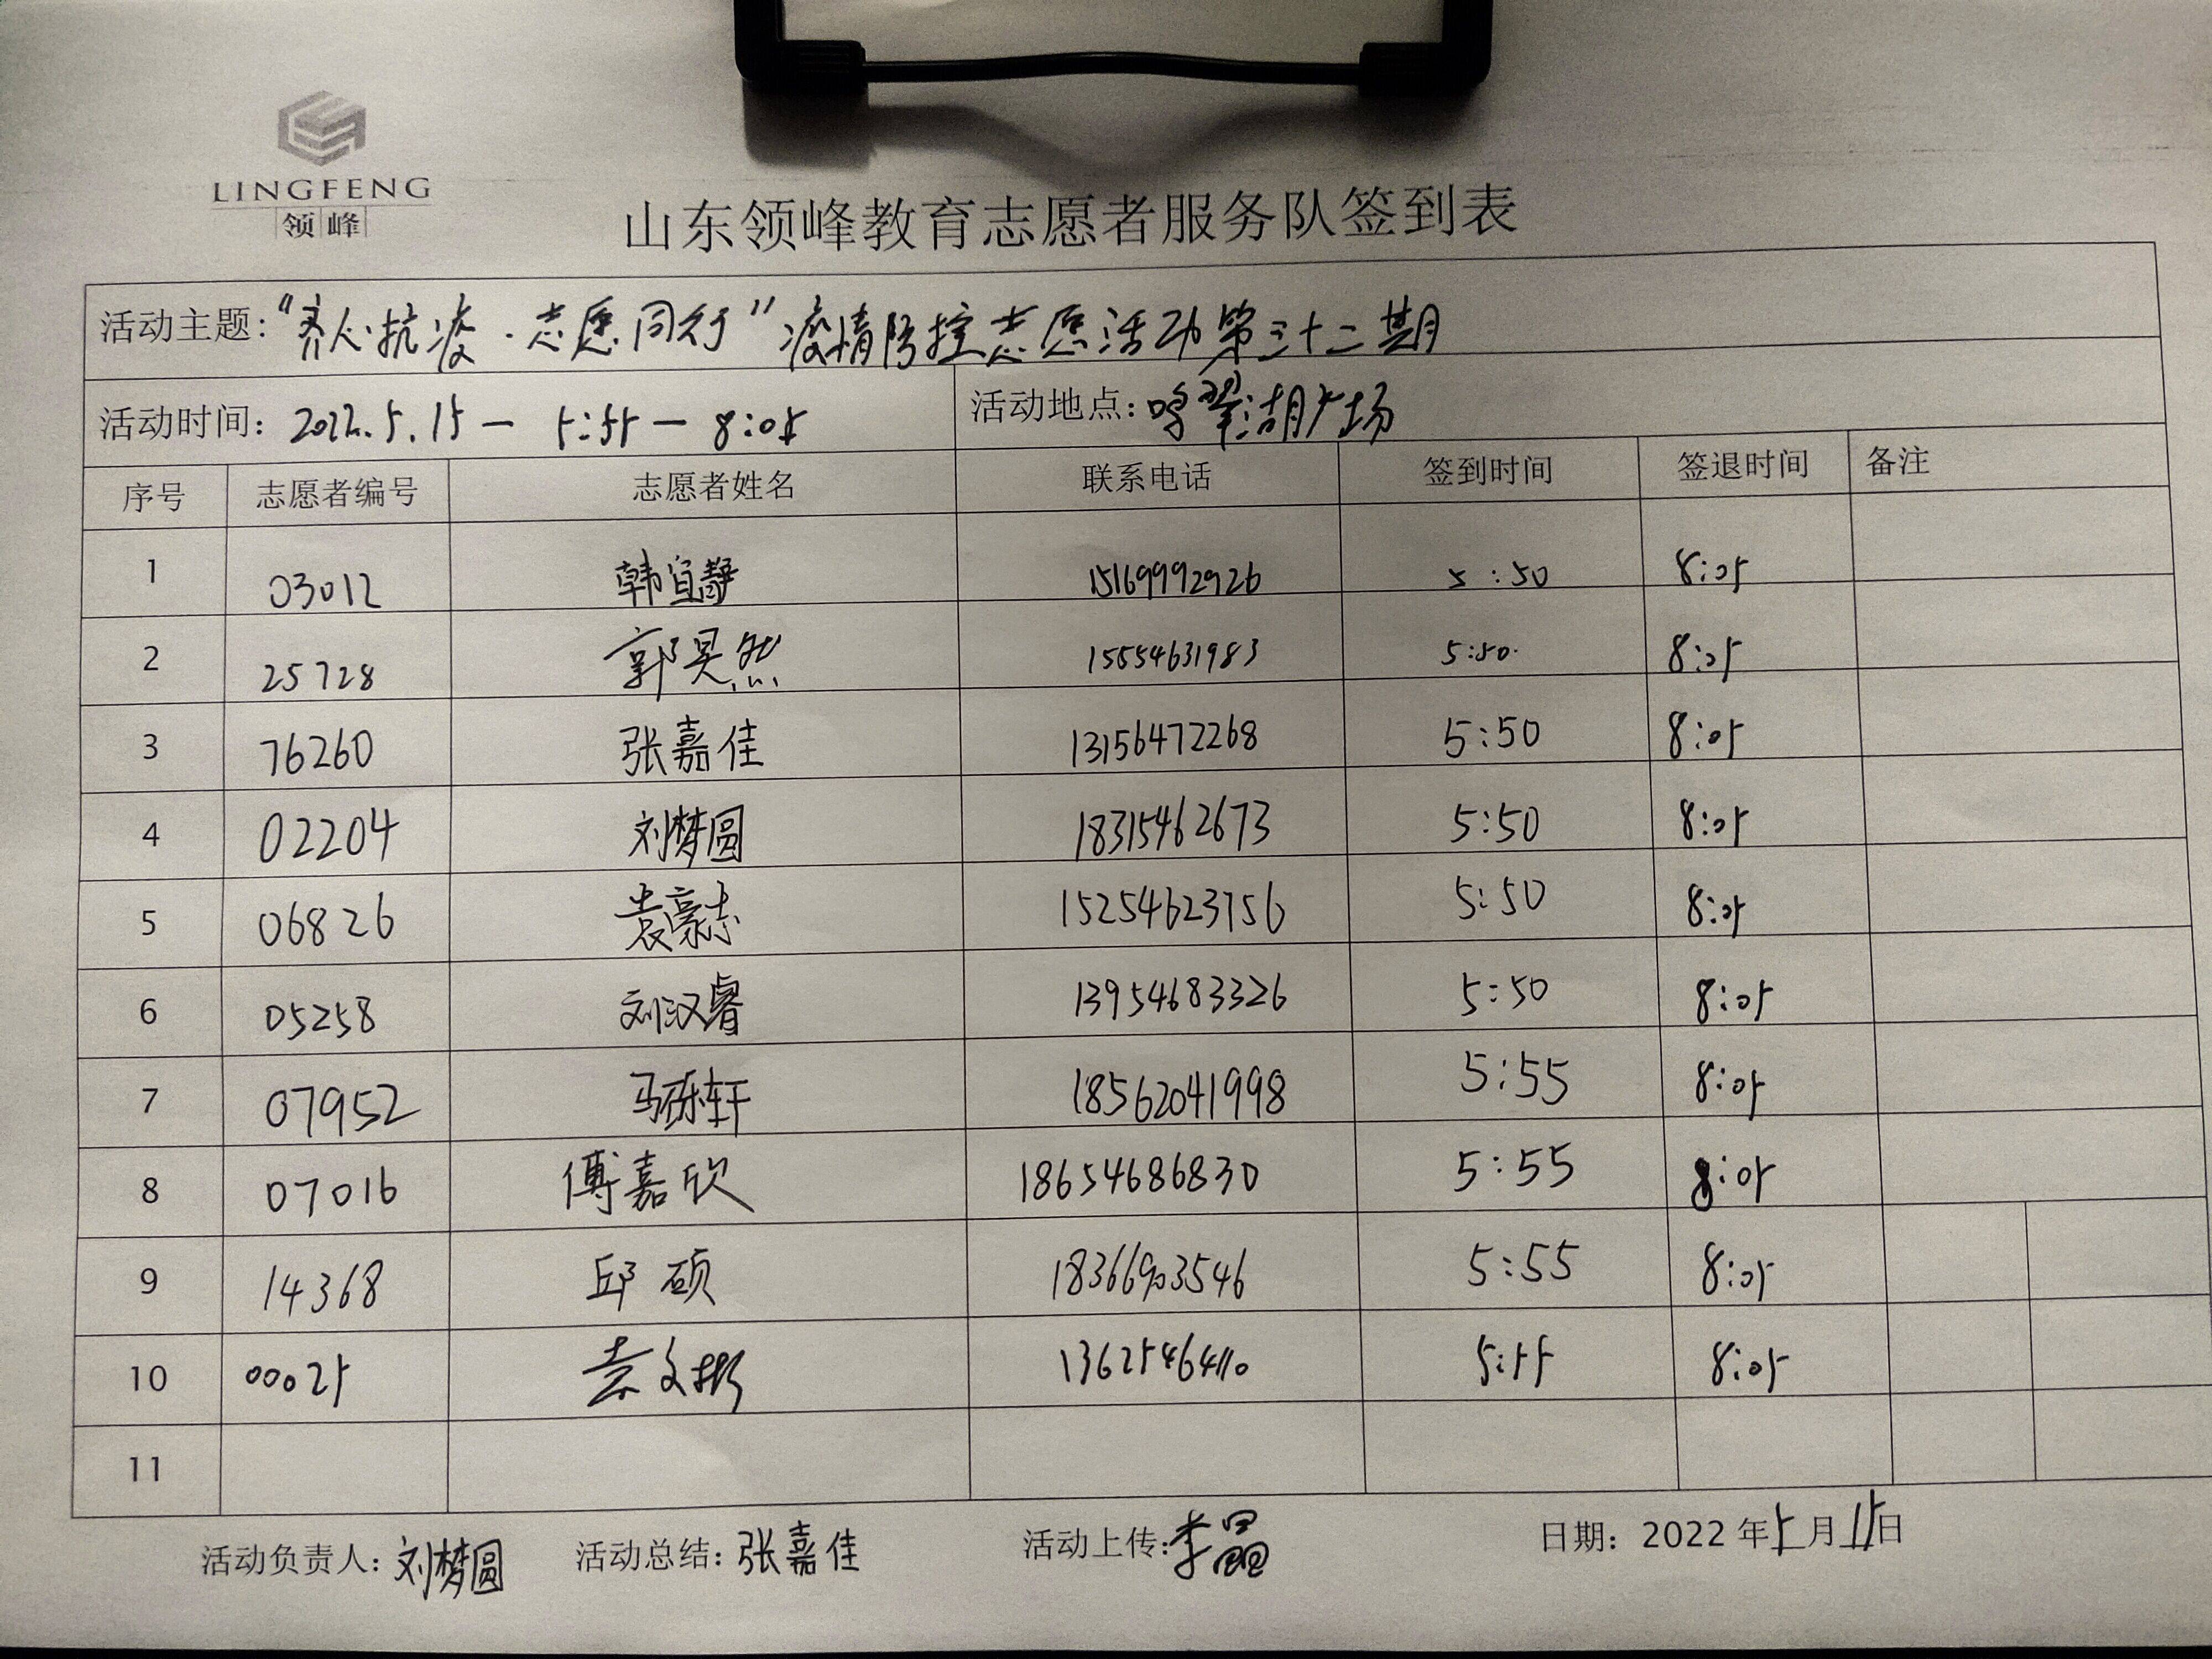 LINGFENG
领峰
山东领峰教育志愿者服务队签到表
活动主题："齐心抗疫·志愿同行"疫情防控志愿活动第三十二期
活动时间：2022.5.15 — 5:55 — 8:05 活动地点：鸣翠湖广场
序号 志愿者编号 志愿者姓名 联系电话 签到时间 签退时间 备注
1 03012 韩宜静 15169992926 5:50 8:05
2 25728 郭昊然 15554631983 5:50 8:05
3 76260 张嘉佳 13156472268 5:50 8:05
4 02204 刘梦圆 18315462673 5:50 8:05
5 06826 袁豪志 15254623756 5:50 8:05
6 05258 刘汉睿 13954683326 5:50 8:05
7 07952 马栋轩 18562041998 5:55 8:05
8 07016 傅嘉欣 18654686830 5:55 8:05
9 14368 邱硕 18366903546 5:55 8:05
10 00025 袁文彬 13625464110 5:55 8:05
11
活动负责人：刘梦圆 活动总结：张嘉佳 活动上传：李晶 日期：2022年5月15日